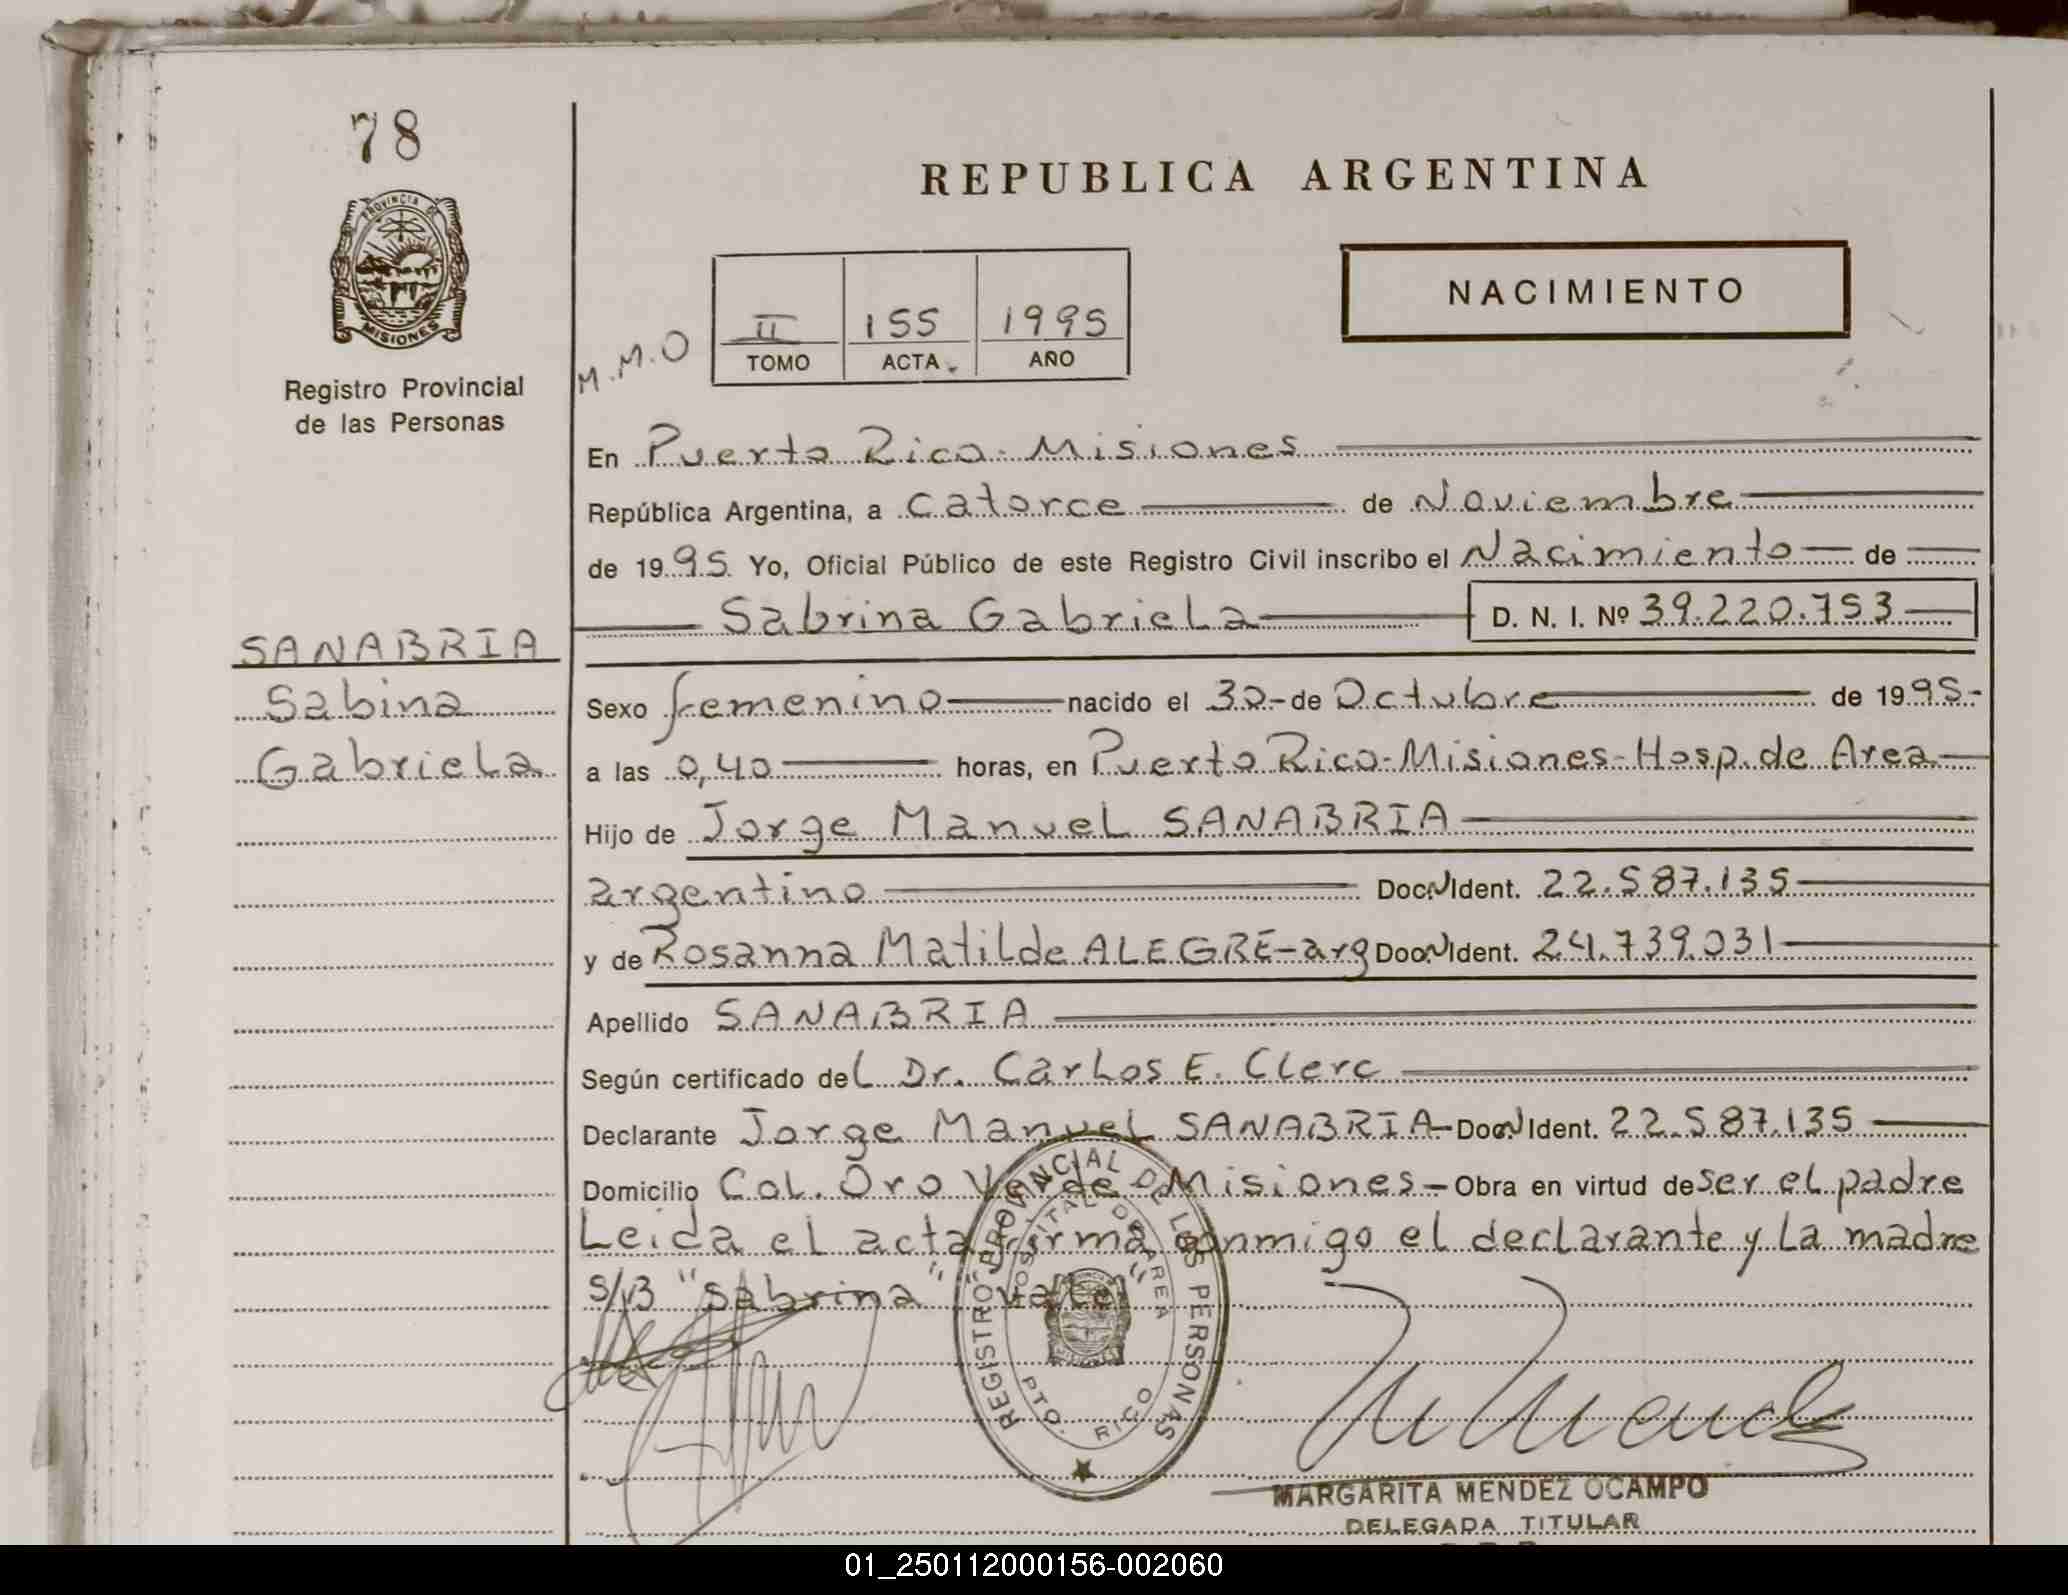 78
PROVINCIA DE
MISIONES
Registro Provincial
de las Personas
REPUBLICA ARGENTINA
NACIMIENTO
M.M.O
II 155 1995
TOMO ACTA AÑO
En Puerto Rico - Misiones
República Argentina, a catorce de Noviembre
de 1995 Yo, Oficial Público de este Registro Civil inscribo el Nacimiento de
Sabrina Gabriela D. N. I. Nº 39.220.753
SANABRIA
Sabina
Gabriela
Sexo femenino nacido el 30 - de Octubre de 1995-
a las 0,40 horas, en Puerto Rico - Misiones - Hosp. de Area
Hijo de Jorge Manuel SANABRIA
argentino Doc. N Ident. 22.587.135
y de Rosanna Matilde ALEGRE - arg Doc. N Ident. 24.739.031
Apellido SANABRIA
Según certificado del Dr. Carlos E. Clerc
Declarante Jorge Manuel SANABRIA - Doc. N Ident. 22.587.135
Domicilio Col. Oro Verde - Misiones - Obra en virtud de ser el padre
Leida el acta firma conmigo el declarante y la madre
S/B "Sabrina" "Vale"
REGISTRO PROVINCIAL DE LAS PERSONAS
HOSPITAL DE AREA
PTO. RICO
MISIONES
MARGARITA MENDEZ OCAMPO
DELEGADA TITULAR
01_250112000156-002060